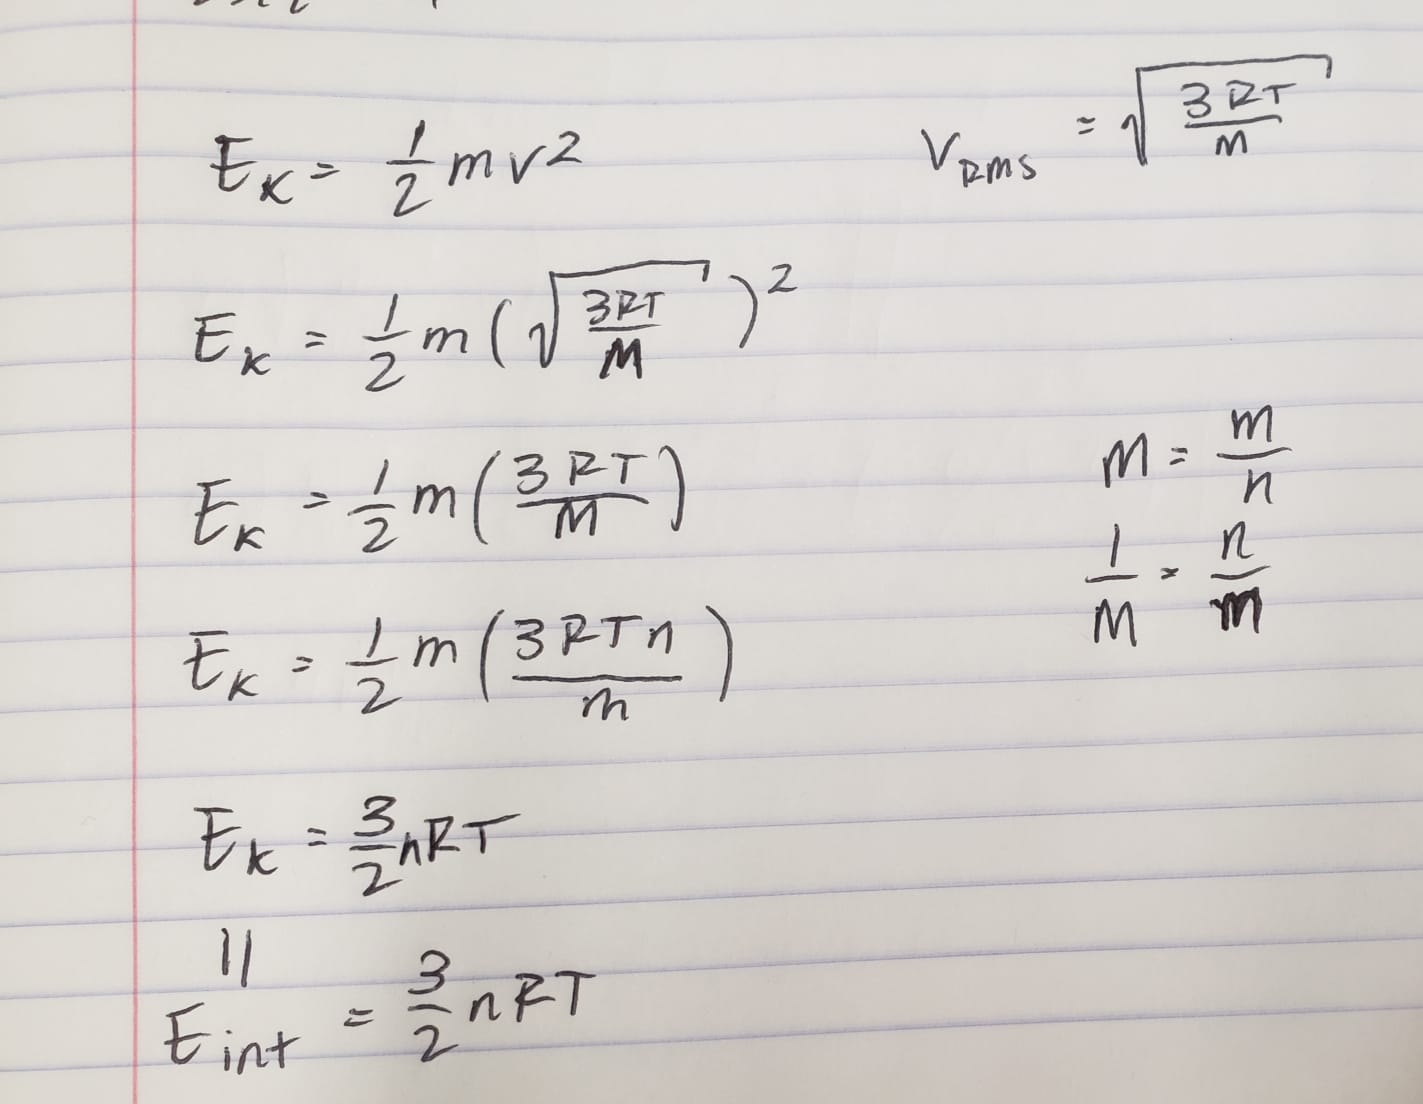 E_K = 1/2 m v²
V_RMS = √(3RT/M)
E_K = 1/2 m (√(3RT/M))²
M = m/n
E_K = 1/2 m (3RT/M)
1/M = n/m
E_K = 1/2 m (3RTn/m)
E_K = 3/2 nRT
||
E_int = 3/2 nRT